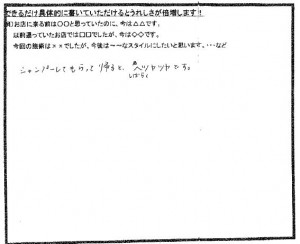 できるだけ具体的に書いていただけるとうれしさが倍増します!!
例)お店に来る前は○○と思っていたのに、今は△△です。
以前通っていたお店では□□でしたが、今は◇◇です。
今回の施術は××でしたが、今後は~~なスタイルにしたいと思います。…など
シャンプーしてもらって帰ると、
しばらくツヤツヤです。